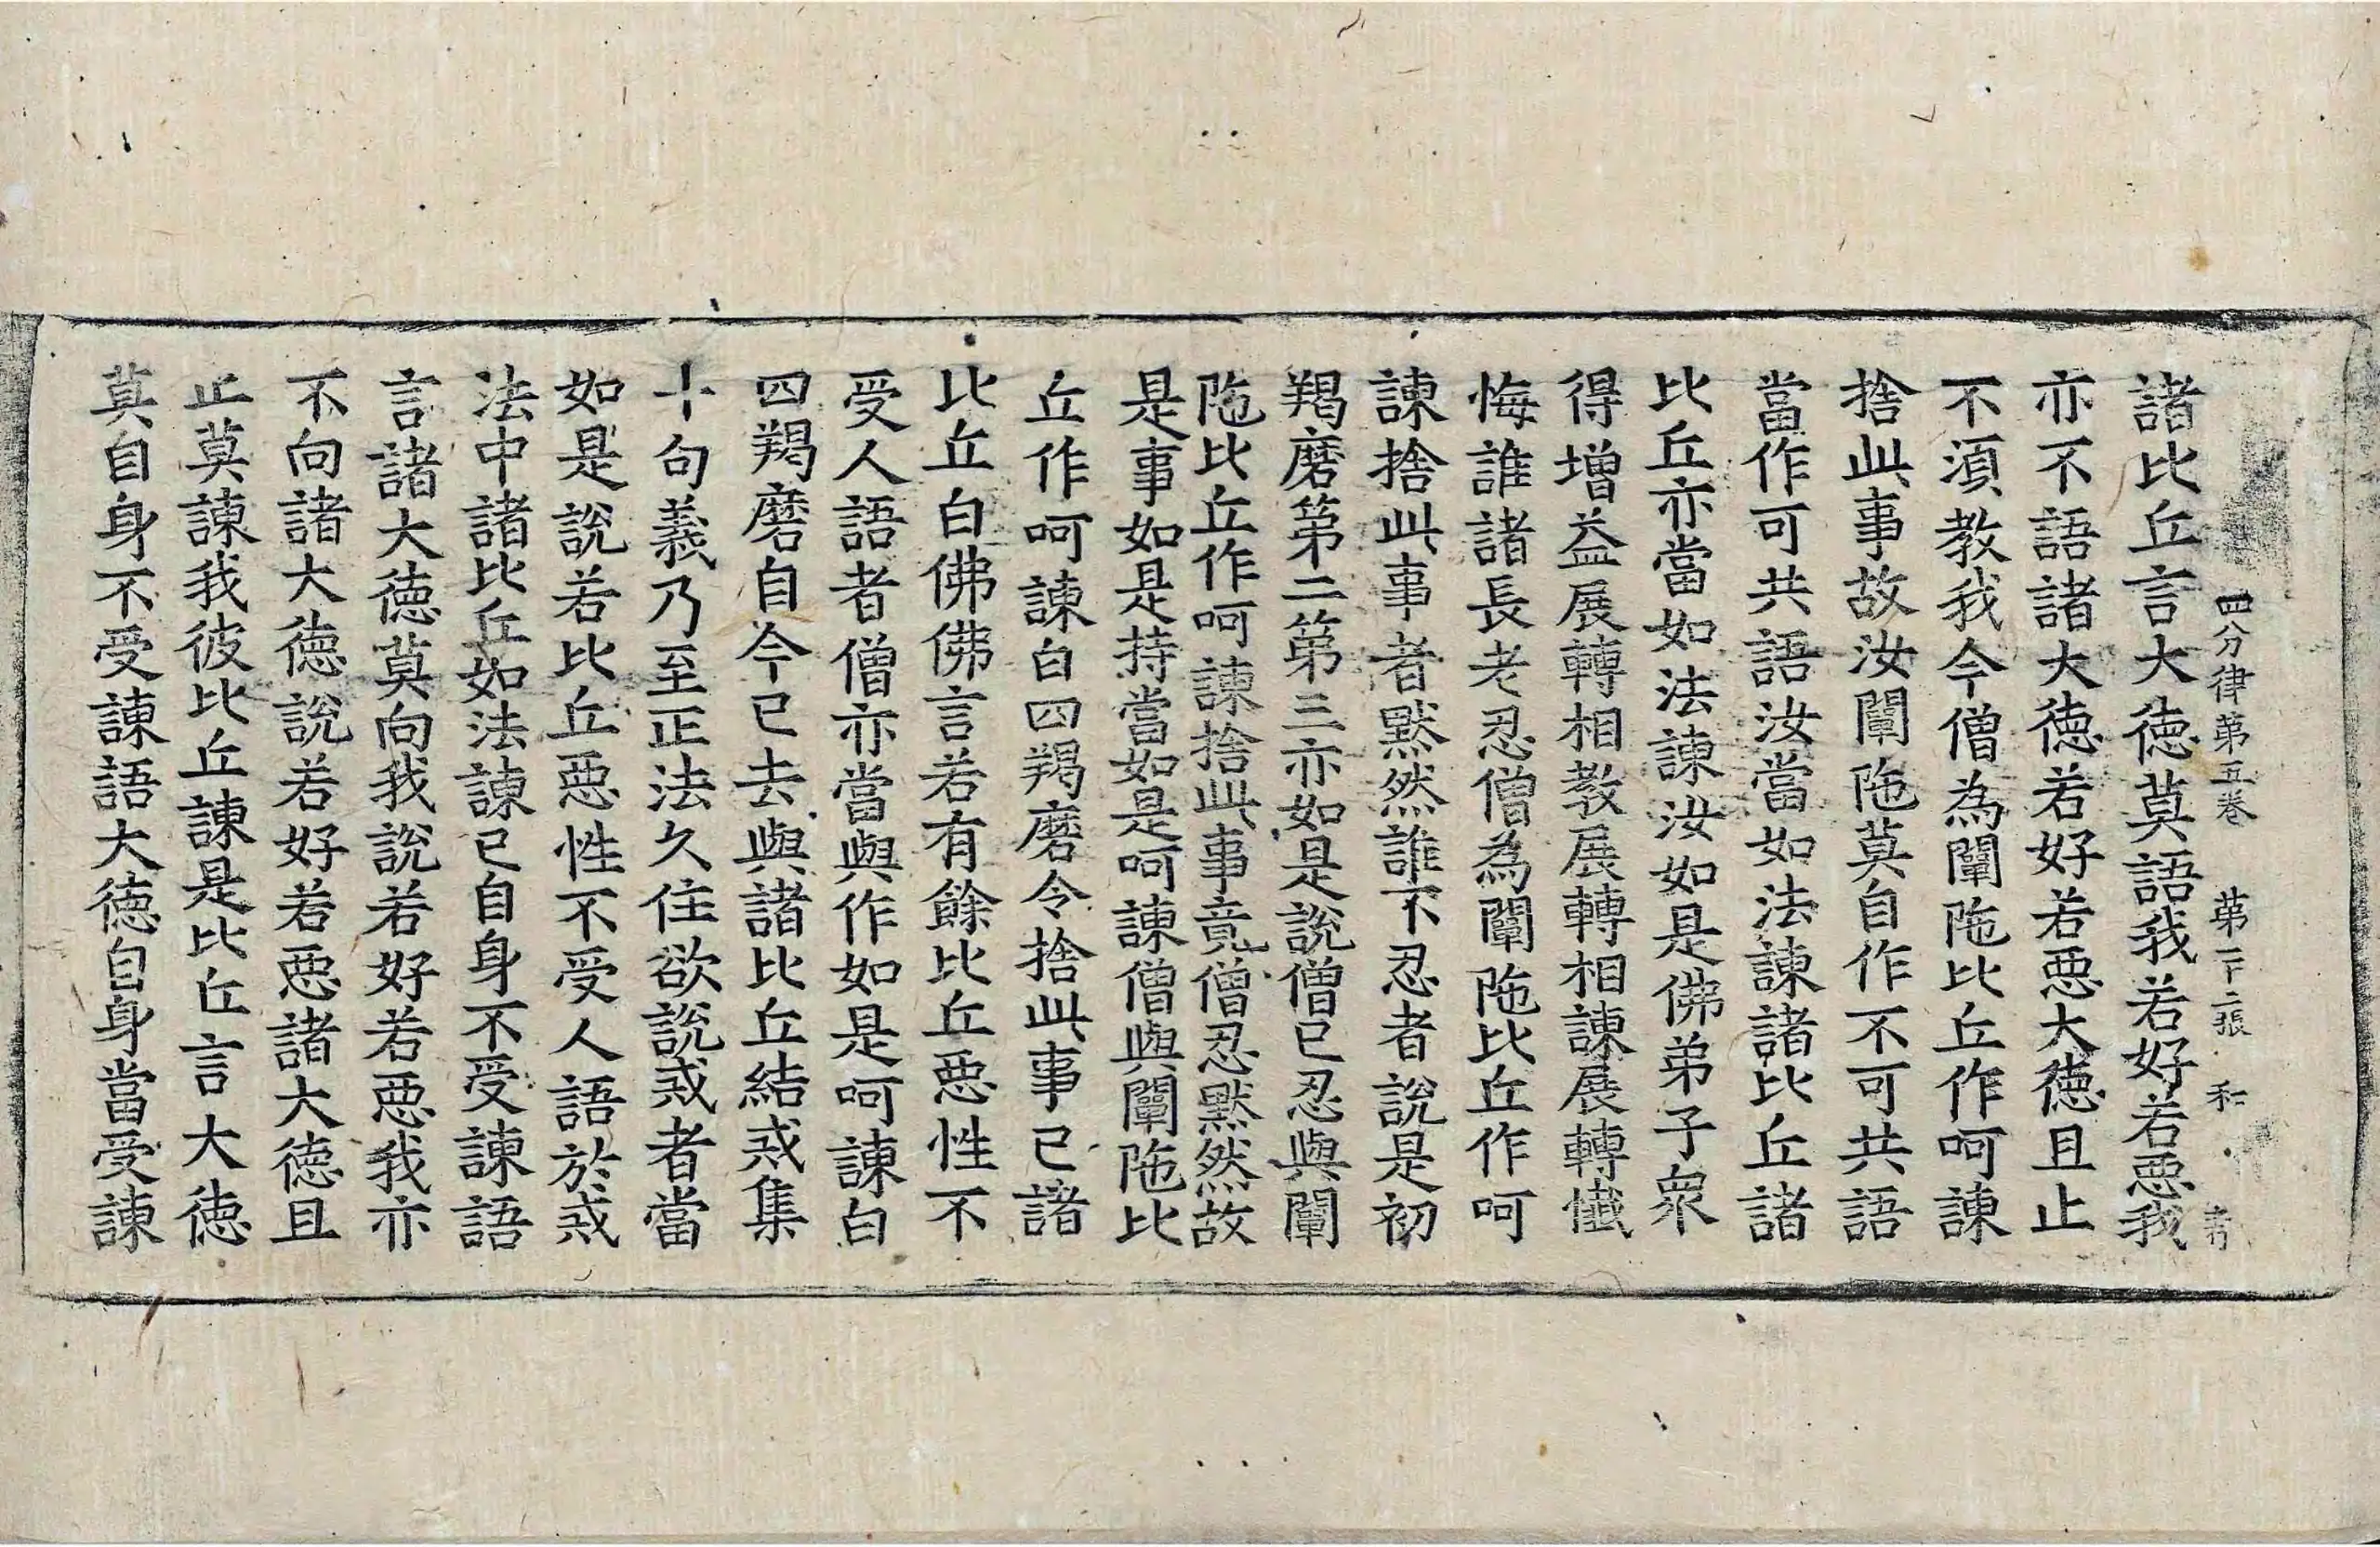 四分律第五卷 第二十二張 和
諸比丘言大德莫語我若好若惡我
亦不語諸大德若好若惡大德且止
不湏教我今僧為闡陁比丘作呵諫
捨此事故汝闡陁莫自作不可共語
當作可共語汝當如法諫諸比丘諸
比丘亦當如法諫汝如是佛弟子衆
得增益展轉相教展轉相諫展轉懺
悔誰諸長老忍僧為闡陁比丘作呵
諫捨此事者默然誰不忍者說是初
羯磨第二第三亦如是說僧已忍與闡
陁比丘作呵諫捨此事竟僧忍默然故
是事如是持當如是呵諫僧與闡陁比
丘作呵諫白四羯磨令捨此事已諸
比丘白佛佛言若有餘比丘惡性不
受人語者僧亦當與作如是呵諫白
四羯磨自今已去與諸比丘結戒集
十句義乃至正法久住欲說戒者當
如是說若比丘惡性不受人語於戒
法中諸比丘如法諫已自身不受諫語
言諸大德莫向我說若好若惡我亦
不向諸大德說若好若惡諸大德且
止莫諫我彼比丘諫是比丘言大德
莫自身不受諫語大德自身當受諫